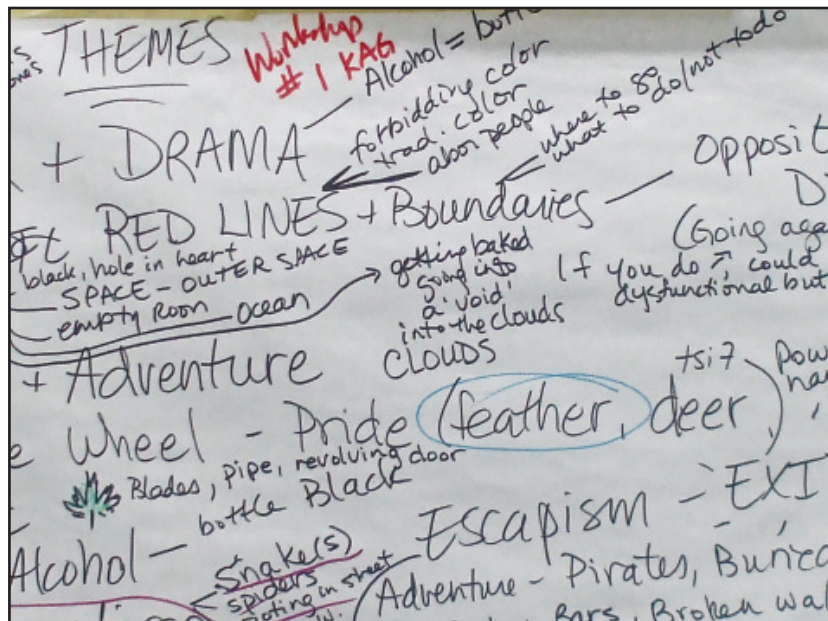 THEMES
Workshop
# 1 KAG
Alcohol =
+ DRAMA
forbidding color
trad. color
abor people
where to go
what to do/not to do
RED LINES + Boundaries
Opposit
D
(Going aga
If you do ↗, could
dysfunctional but
black, hole in heart
SPACE - OUTER SPACE
empty Room
ocean
getting baked
going into
a void,
into the clouds
CLOUDS
+ Adventure
tsi7
Wheel - Pride (feather, deer)
Pow
Blades, pipe, revolving door
bottle Black
Alcohol -
Escapism - EXI
Snake(s)
spiders
in street
Adventure - Pirates, Buried
Bars, Broken wal